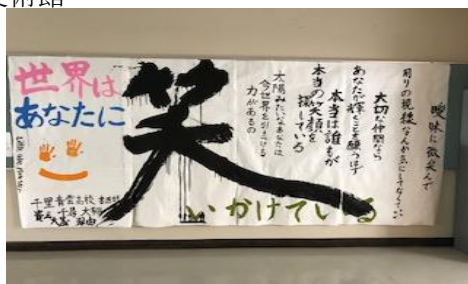 美術館
曖昧に微笑んで
周りの視線なんか気にしてなくていい
大切な仲間なら
あなたが輝くことを願うはず
本当は誰もが
本当の笑顔を
探している
太陽みたいなあなたは
今世界を
力があるの
世界は
あなたに
笑
いかけている
千里青雲高校 書道部